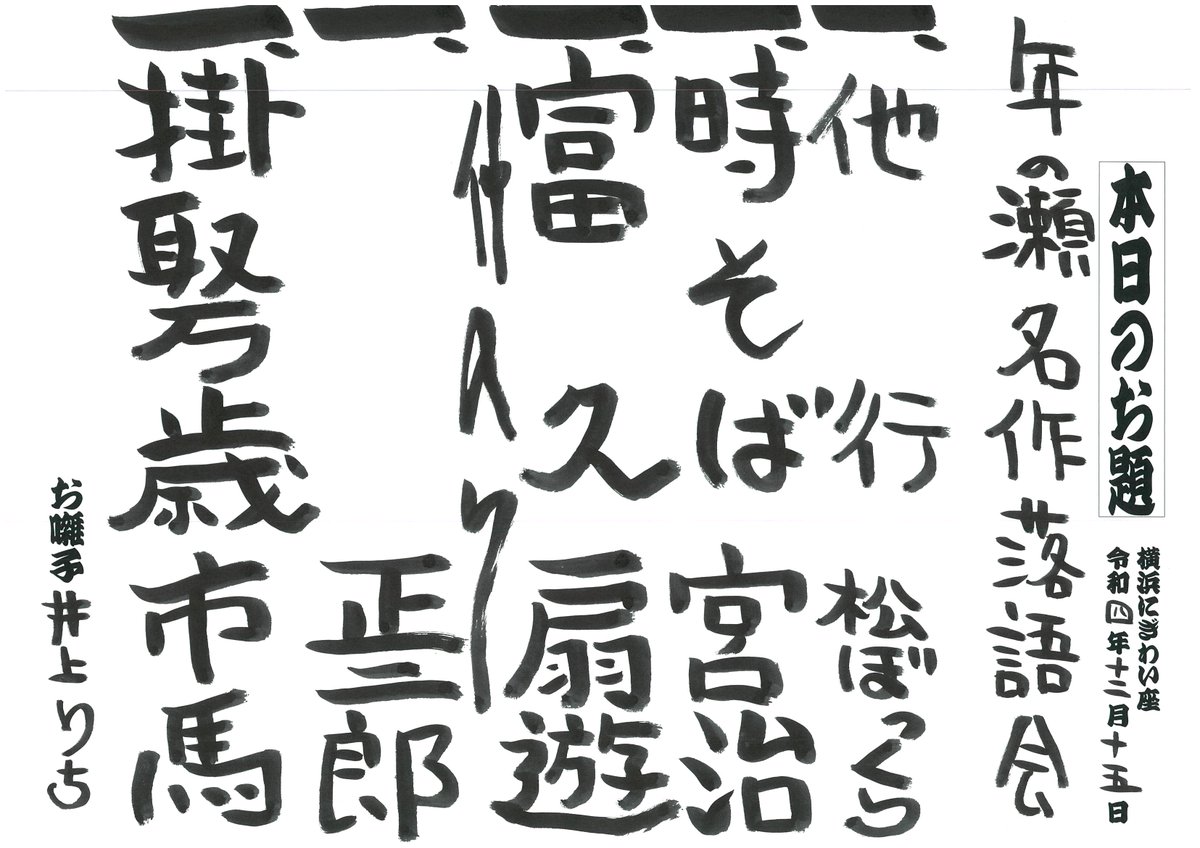 本日のお題
横浜にぎわい座
令和四年十二月十五日
年の瀬名作落語会
一、他行 松ぼっくり
一、時そば 宮治
一、富久 扇遊
仲入り
一、 正三郎
一、掛取万歳 市馬
お囃子 井上りち